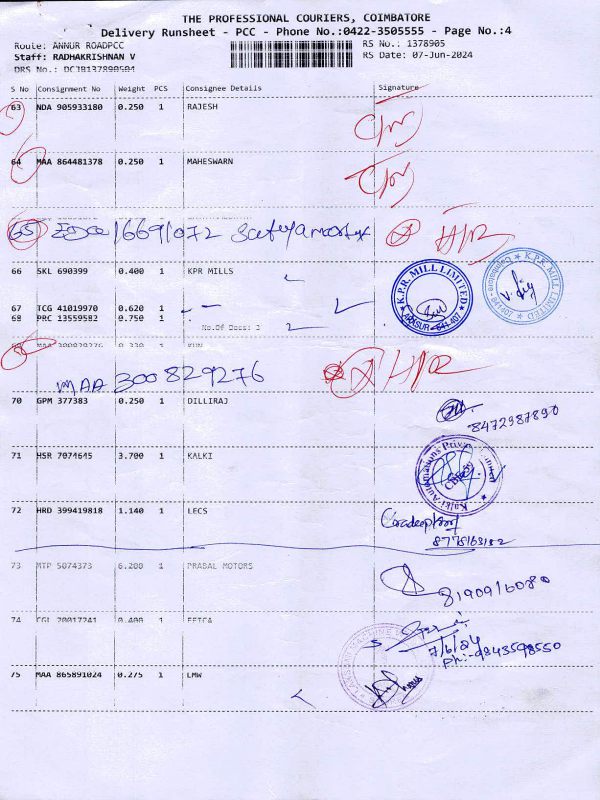 THE PROFESSIONAL COURIERS, COIMBATORE
Delivery Runsheet - PCC - Phone No.:0422-3505555 - Page No.:4
Route: ANNUR ROADPCC RS No.: 1378905
Staff: RADHAKRISHNAN V RS Date: 07-Jun-2024
DRS No.:
S No Consignment No Weight PCS Consignee Details Signature
63 NDA 905933180 0.250 1 RAJESH
64 MAA 864481378 0.250 1 MAHESWARN
65
66 SKL 690399 0.400 1 KPR MILLS
K.P.R. MILL LIMITED
ARASUR - 641 407
K.P.R. MILL LIMITED
67 TCG 41019970 0.620 1
68 PRC 13559582 0.750 1
No.Of Docs: 2
MAA 300829276
70 GPM 377383 0.250 1 DILLIRAJ
8472987890
71 HSR 7074645 3.700 1 KALKI
72 HRD 399419818 1.140 1 LECS
73 MTP 5074373 6.200 1 PRABAL MOTORS
74 CGL 70017241 0.400 1
7/6/24
Ph:-9843598550
75 MAA 865891024 0.275 1 LMW